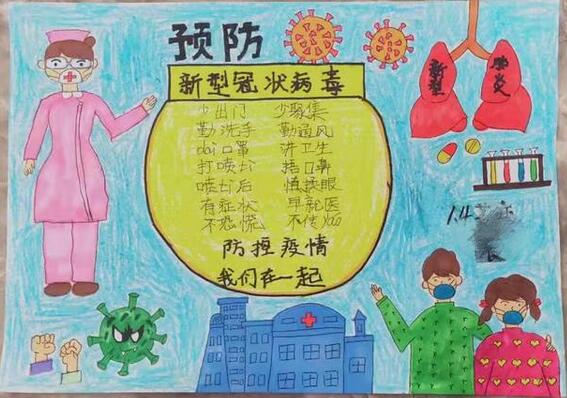 预防
新型冠状病毒
少出门 少聚集
勤洗手 勤通风
dai口罩 讲卫生
打喷ti 捂口鼻
喷ti后 慎揉眼
有症状 早就医
不恐慌 不传yao
防控疫情
我们在一起
新型 肺炎